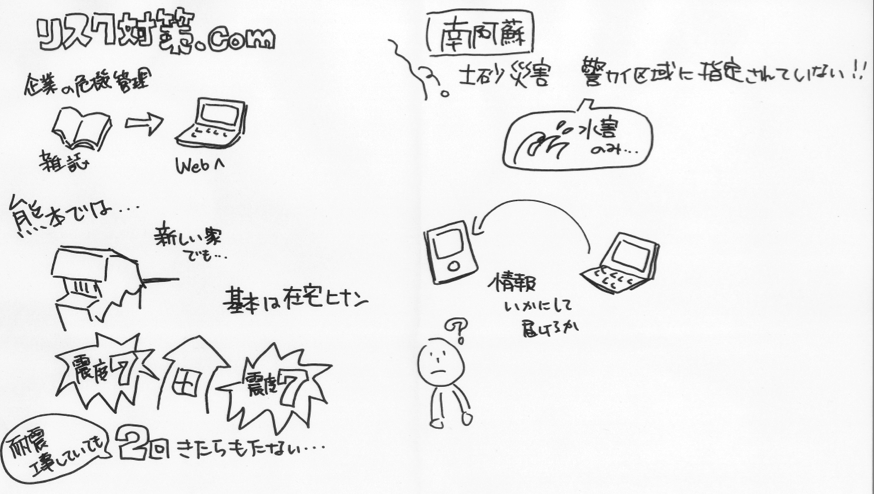 リスク対策.com
企業の危機管理
雑誌
Webへ
熊本では…
新しい家
でも…
基本は在宅ヒナン
震度7
震度7
耐震
工事していても
2回きたらもたない…
南阿蘇
土砂災害 警カイ区域に指定されていない!!
水害
のみ…
情報
いかにして
届けるか
?